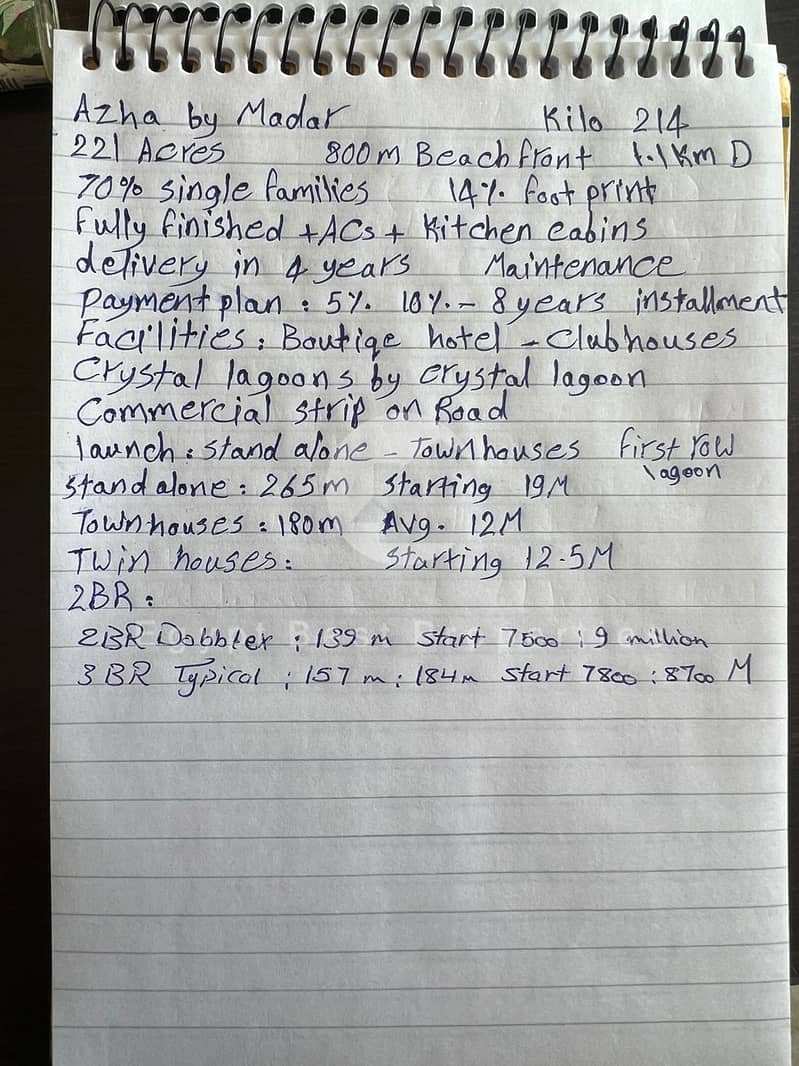 Azha by Madar Kilo 214
221 Acres 800m Beach front 1.1Km D
70% single families 14% foot print
Fully finished + ACs + Kitchen cabins
delivery in 4 years Maintenance
Payment plan : 5% 10% - 8 years installment
Facilities : Boutiqe hotel - Clubhouses
Crystal lagoons by crystal lagoon
Commercial strip on Road
launch : stand alone - Townhouses first row
lagoon
Stand alone : 265m starting 19M
Townhouses : 180m Avg. 12M
Twin houses : starting 12.5M
2BR :
2BR Dobblex : 139 m start 7500 : 9 million
3BR Typical : 157 m : 184m start 7800 : 8700 M